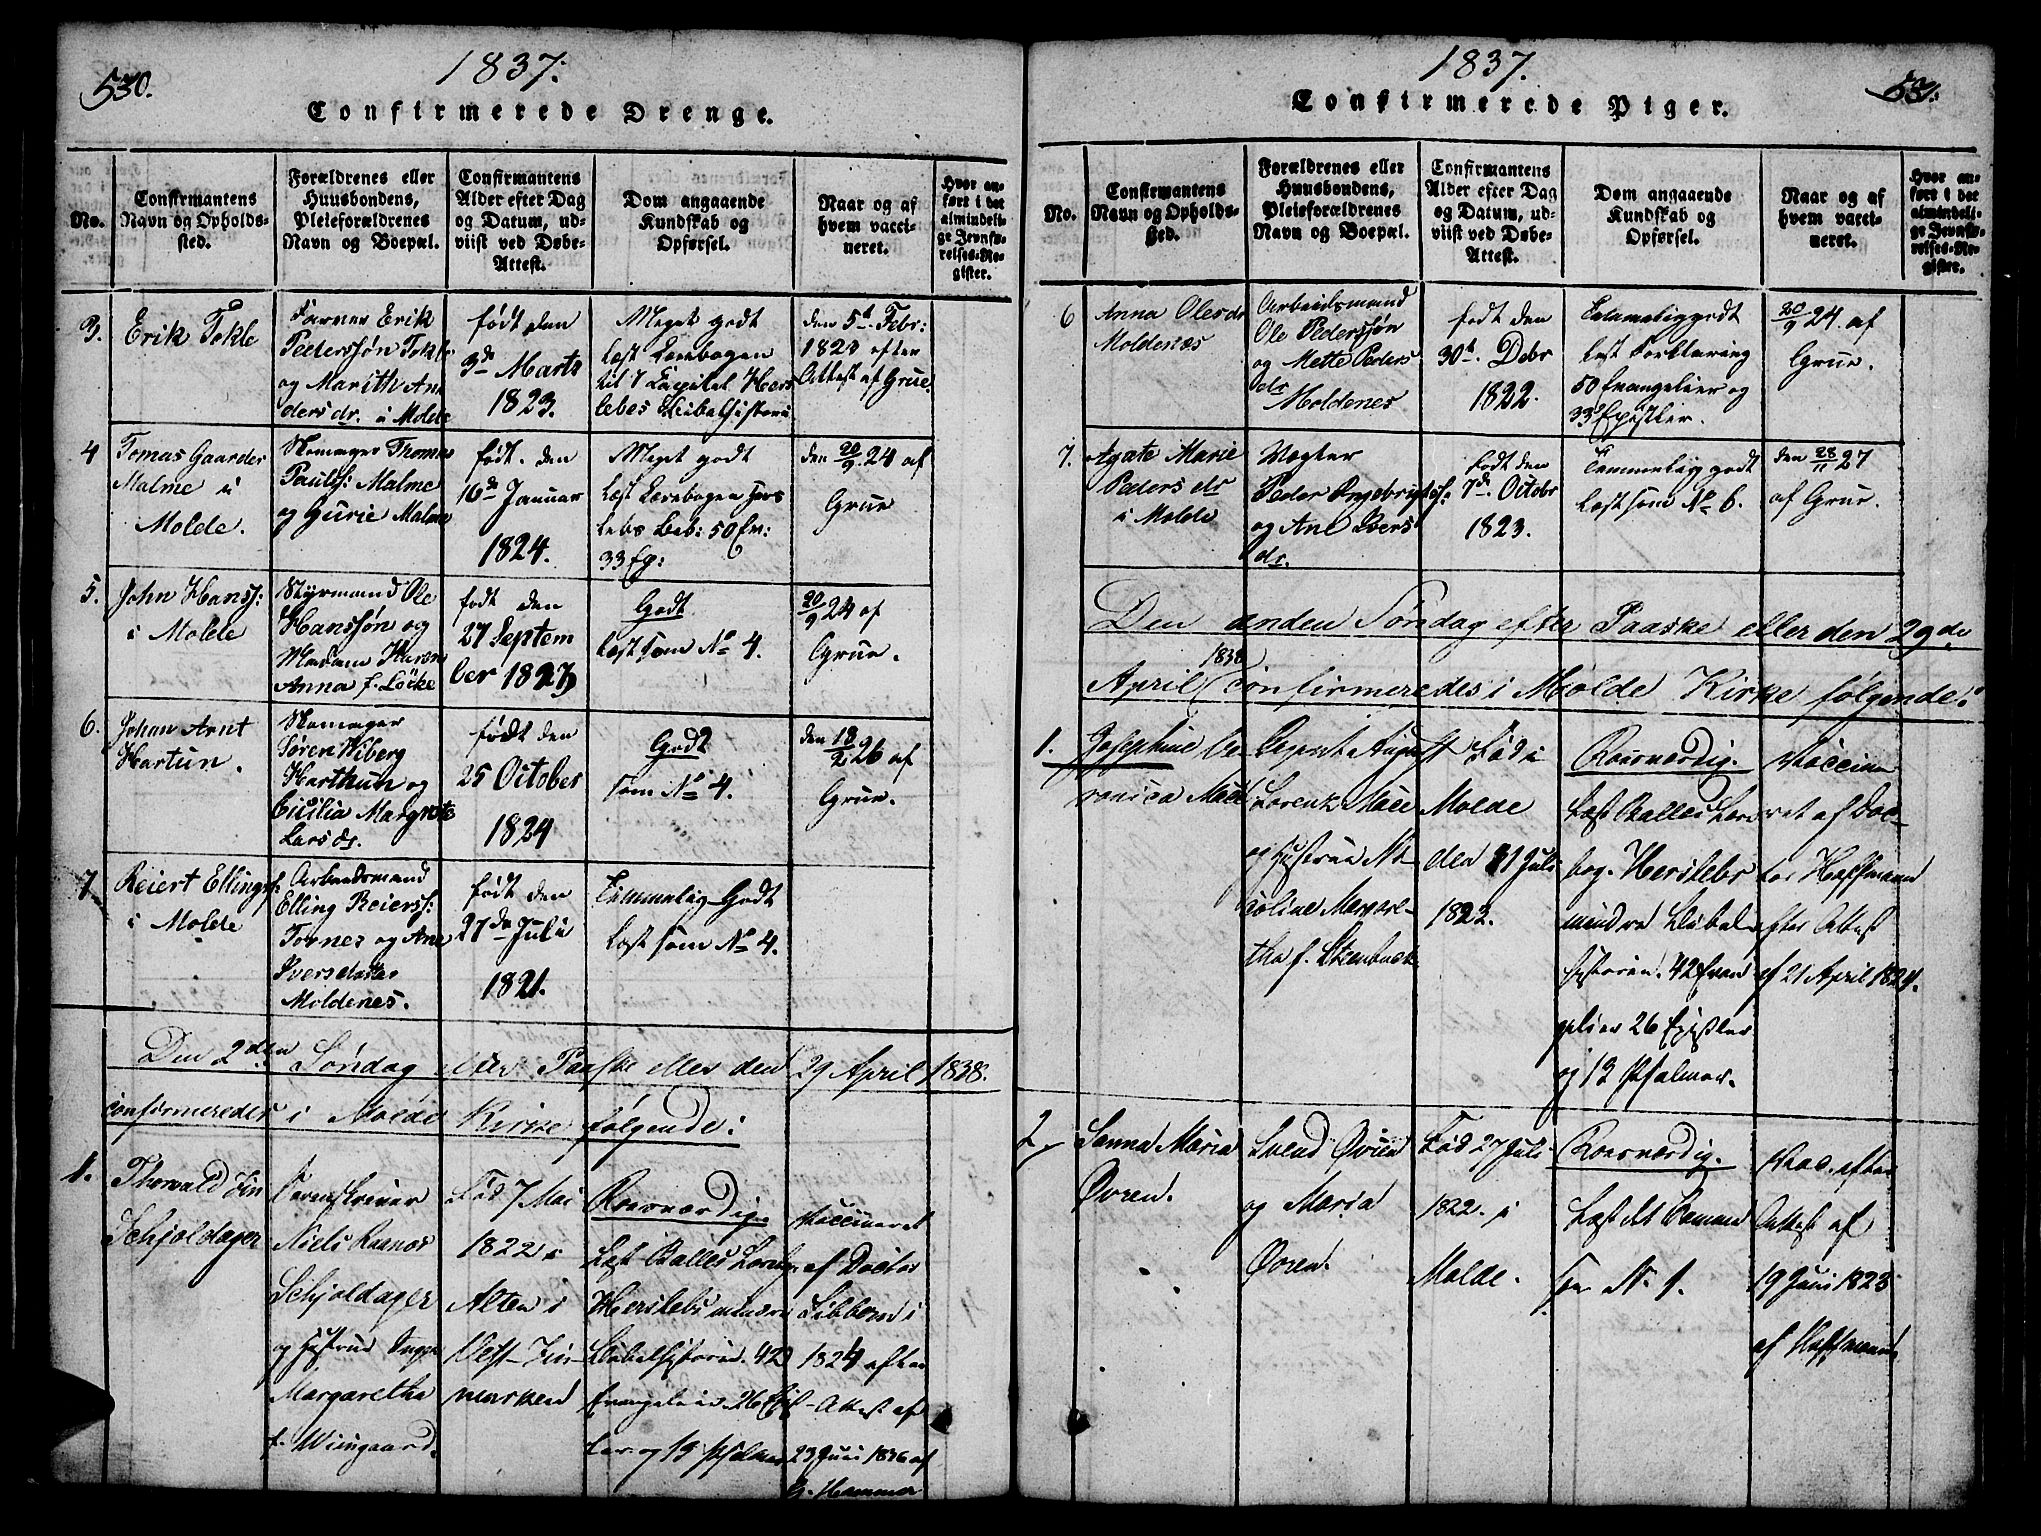 530.
1837.
Confirmerede Drenge.
No.
Confirmantens
Navn og Opholds-
sted.
Forældrenes eller
Huusbondens,
Pleieforældrenes
Navn og Boepæl.
Confirmantens
Alder efter Dag
og Datum, ud-
viist ved Døbe-
Attest.
Dom angaaende
Kundskab og
Opførsel.
Naar og af
hvem vacci-
neret.
Hvor an-
ført i det
almindeli-
ge Jevnfø-
relses-Re-
gister.
3.
Erik Tokle
Farver Erik
Pedersjøn Tokle
og Marith An
dersdr. i Molde
født den
3de Marts
1823.
Meget godt
Læst Lærebogen
til 7 Capitel Hers
lebes Bibelhistorie
den 5t. Febr:
1823 efter
Attest af Grue.
4
Tomas Gaarder
Malme i
Molde.
Skomager Thomas
Pauls: Malme
og Gurie Malme
født. den
16de Januar
1824.
Meget godt
Læst Lærebogen Hers
lebs Bib: 50 Ev:
33 Ep:
den 20/9 24 af
Grue
5.
John Hansf:
i Molde
Styrmand Ole
Hansføn og
Madam Karen
Anna f. Löcke
født den
27 Septem
ber 1823
Godt
Læst som No 4.
20/9 24 af
Grue.
6.
Johan Arnt
Hartun.
Skomager
Søren Wiberg
Harthun og
Cicilia Margrete
Larsdr.
født den
25 October
1824
Godt
som No 4.
den 18/2 26 af
Grue.
7
Reiert Ellingsf:
i Molde
Arbeidsmand
Elling Reiersf:
Tornes og Ane
Iversdatter
Moldenes.
født den
27de Juli
1821.
Temmelig Godt
Læst som No 4.
Den 2den Søndag efter Paaske eller den 29 April 1838.
confirmeredes i Molde Kirke følgende:
1.
Thorwald Fin
Schjoldager
Niels Rasmus
Schjoldager
og Hustrue Inge
Margaretha
f. Wiingaard.
Fød 7 Mai
1822 i
Alten i
Vest-Fin
marken
Roesværdig.
Læst Balles Lærebog
Herslebs mindre
Bibelhistorie. 42
Evangelier 26 Epi
ler og 13 Psalmer
Vaccineret
af Doctor
Sibbern i
1824 efter
Attest af
23 Juni 1836 af
G. Hammer
1837.
531.
Confirmerede Piger.
No.
Confirmantens
Navn og Opholds-
sted.
Forældrenes eller
Huusbondens,
Pleieforældrenes
Navn og Boepæl.
Confirmantens
Alder efter Dag
og Datum, ud-
viist ved Døbe-
Attest.
Dom angaaende
Kundskab og
Opførsel.
Naar og af
hvem vacci-
neret.
Hvor an-
ført i det
almindeli-
ge Jevnfø-
relses-Re-
gister.
6
Anna Olesdr
Moldenæs
Arbeidsmand
Ole Pedersføn
og Mette Peders
dr
Moldenes
født den
30t. Debr
1822.
Temmelig godt
Læst Forklaring
50 Evangelier og
33 Epistler.
20/9 24. af
Grue.
7.
Agate Marie
Peders dr
i Molde
Vægter
Peder Ingebrigtsf:
og Ane Ivers
dr.
født den
7de Octobr
1823.
Temmelig godt
Læst som No 6.
den 28/11 27
af Grue.
Den anden Søndag efter Paaske eller den 29de
April 1838 confirmeredes i Molde Kirke følgende:
1.
Josephine Ve
ronica Mace
August
Lorenz Mace
og Hustrue Ni
coline Margare-
tha f. Steenbuck
Fød i
Molde
den 31 Juli
1822.
Roesværdig.
Læst Balles Lære
bog. Herslebs
mindre Bibel
historie. 42 Evan
gelier 26 Epistler
og 13 Psalmer.
Vaccine
ret af Doc-
tor Hoffmann
efter Attest
af 21 April 1824.
2.
Sanna Maria
Øvren.
Svend Øvren
og Maria
Øvren.
Fød 27 Juli
1822. i
Molde.
Roesværdig.
Læst det Samme
som No. 1.
Vac. efter
Attest af
19 Juni 1823
af Hoffmann